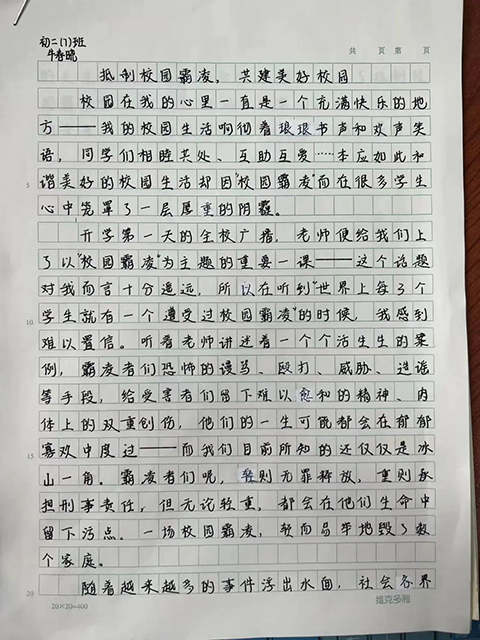 初二(1)班
牛春晓
共 页 第 页
抵制校园霸凌，共建美好校园
校园在我的心里一直是一个充满快乐的地
方——我的校园生活响彻着琅琅书声和欢声笑
语，同学们相睦共处、互助互爱……本应如此和
5 谐美好的校园生活却因“校园霸凌”而在很多学生
心中笼罩了一层厚重的阴霾。
开学第一天的全校广播，老师便给我们上
了以“校园霸凌”为主题的重要一课——这个话题
对我而言十分遥远，所以在听到“世界上每3个
10 学生就有一个遭受过校园霸凌”的时候，我感到
难以置信。听着老师讲述着一个个活生生的案
例，霸凌者们恐怖的谩骂、殴打、威胁、造谣
等手段，给受害者们留下难以愈和的精神、肉
体上的双重创伤，他们的一生可能都会在郁郁
15 寡欢中度过——而我们目前所知的还仅仅是冰
山一角。霸凌者们呢，轻则无罪释放，重则承
担刑事责任，但无论轻重，都会在他们生命中
留下污点。一场校园霸凌，轻而易举地毁了数
个家庭。
20 随着越来越多的事件浮出水面，社会各界
20×20=400
维克多利